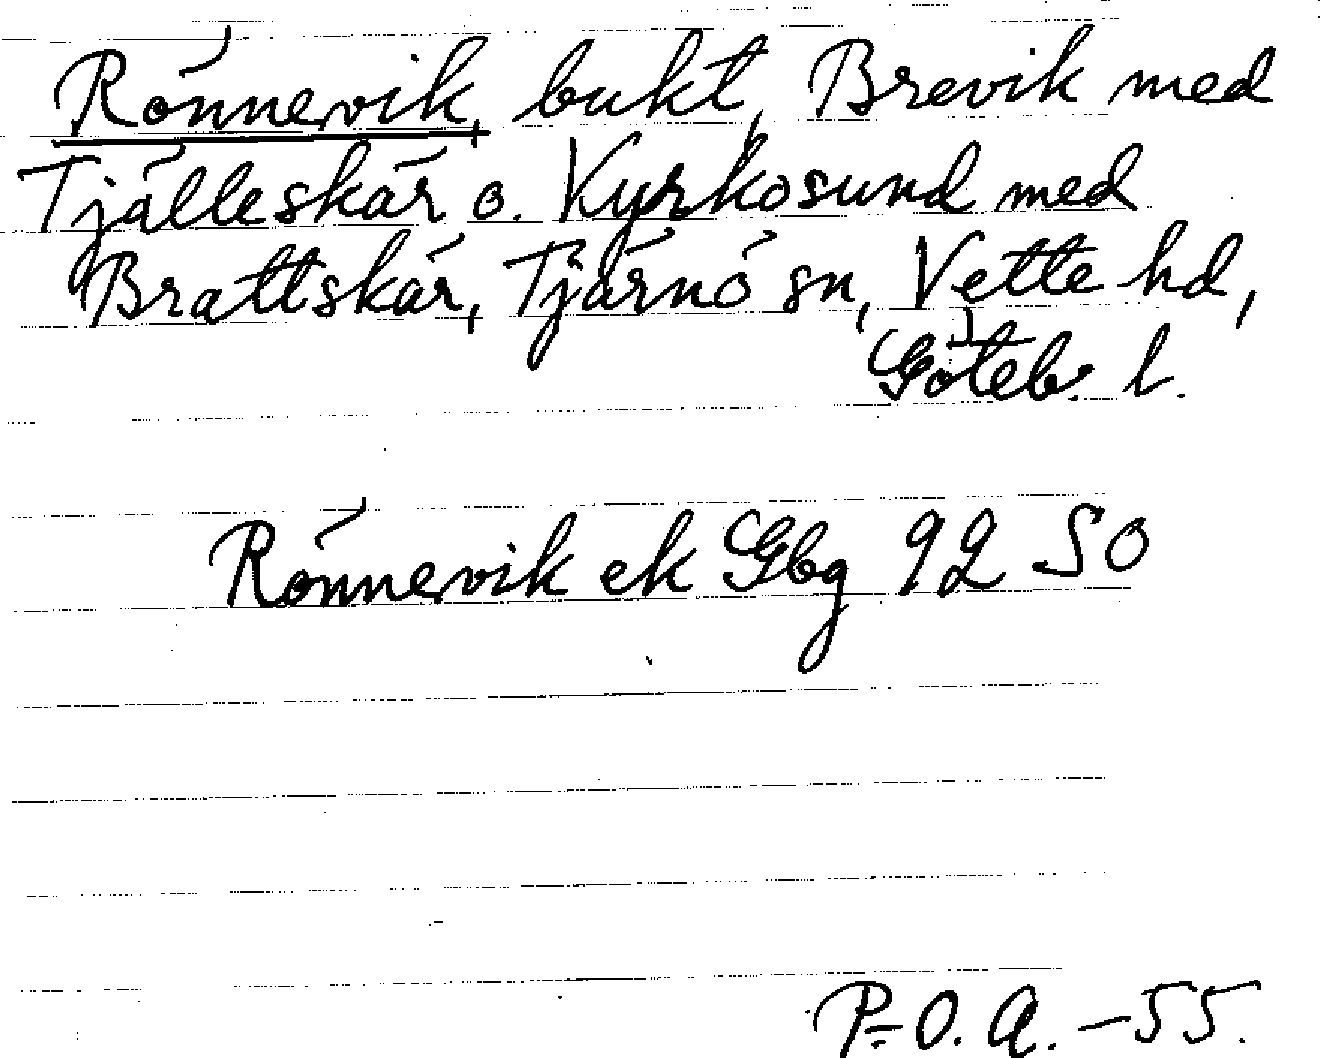 Rönnevik, bukt, Brevik med
Tjälleskär o. Kyrkosund med
Brattskär, Tjärnö sn, Vette hd,
Göteb. l.
Rönnevik ek Gbg 92 SO
P-O. A. -55.